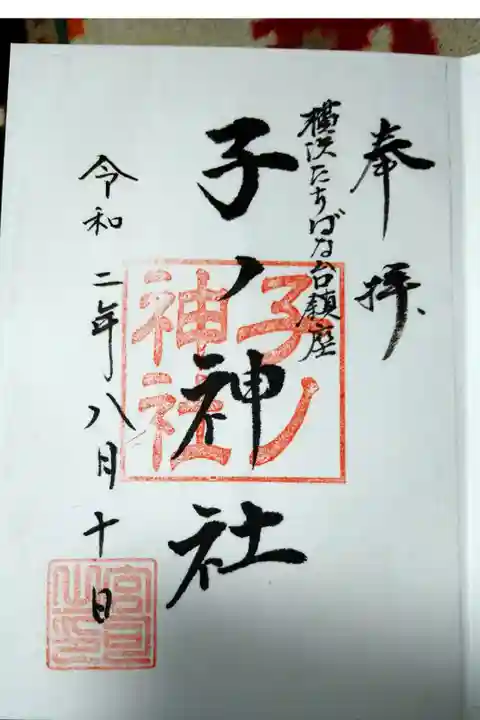 奉拝
横浜たちばな台鎮座
子ノ神社
子ノ神社
令和二年八月十日
宮司之印